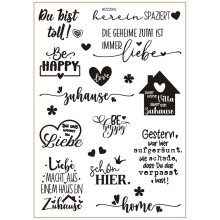 Du bist
toll!
herein SPAZIERT
DIE GEHEIME ZUTAT IST
IMMER
Liebe
Be
HAPPY
Love
zuhause
Villa
Zuhause
Liebe
Be
happy
Gestern
war hier
aufgeräumt.
wie schade,
dass Du das
verpasst
hast!
Liebe
MACHT AUS
EINEM HAUS EIN
Zuhause
schön
HIER.
home